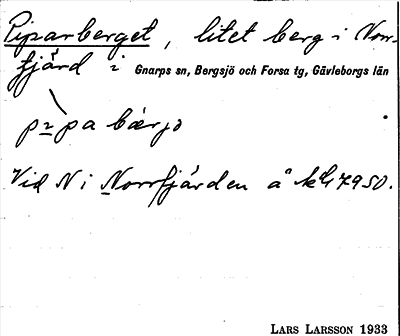 Piparberget, litet berg i Norr-
fjärd i Gnarps sn, Bergsjö och Forsa tg, Gävleborgs län
Vid N i Norrfjärden å kbl 7950.
LARS LARSSON 1933